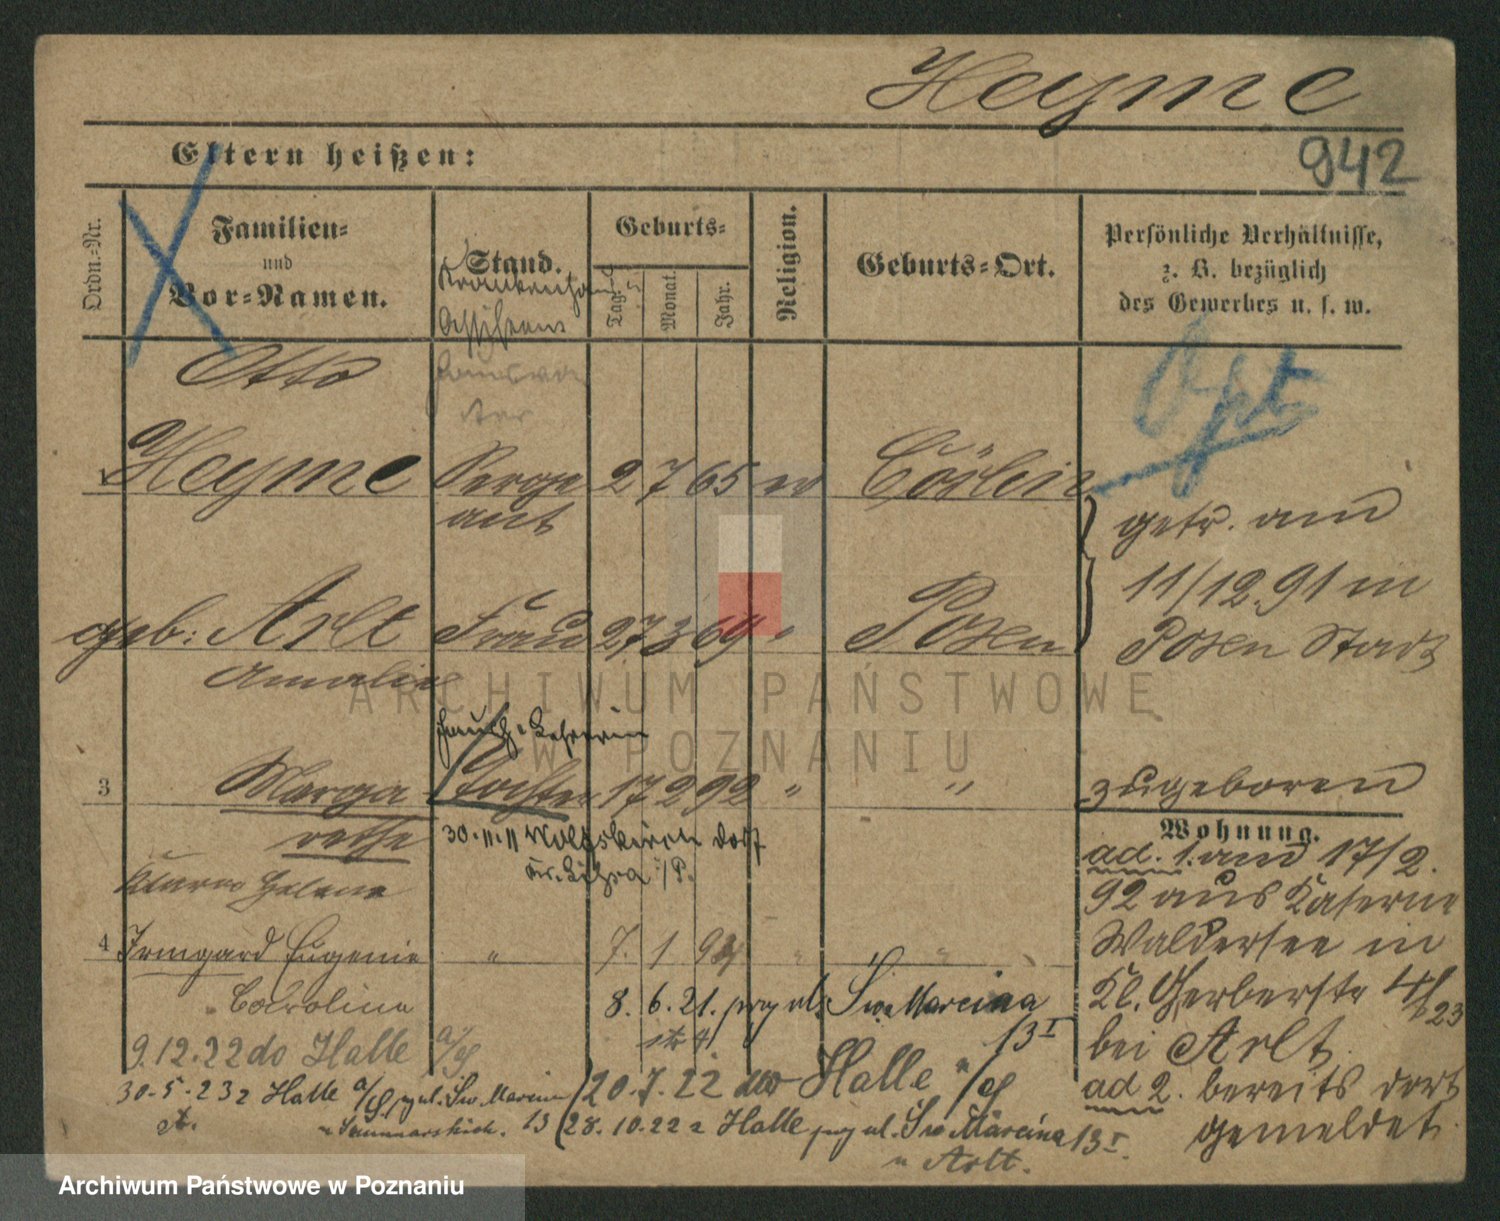 Heyme
942
Eltern heißen:
Ordn.-Nr.
Familien-
und
Vor-Namen.
Stand.
Geburts-
Tag.
Monat.
Jahr.
Religion.
Geburts-Ort.
Persönliche Verhältnisse,
z. B. bezüglich
des Gewerbes u. s. w.
Krankenhaus
Assistent
Otto
Opt
1 Heyme Serge 2 7 65 ev Cöslin
ant
getr. am
11/12.91 in
Posen Stadt
geb: Arlt Frau 27 3 69 " Posen
Amalie
ARCHIWUM PAŃSTWOWE
W POZNANIU
Lehrerin
3 Marga Tochter 17 2 92 " " zugeboren
rethe
30.11.11 Wolfskirch Dorf
Helene
4 Irmgard Eugenie " 7. 1 94 " "
Carolina
Wohnung.
ad. 1. am 17/2.
92 aus Kaserne
Waldersee in
Kl. Gerberstr 4/
23
bei Arlt.
ad 2. bereits dort
gemeldet.
8. 6. 21. przy ul. Św. Marcina
13 I
9.12.22 do Halle a/S
20.7.22 do Halle a/S
30-5-23 z Halle a/S ul. Św. Marcin 13
28.10.22 z Halle przy ul. Św Marcina 13 I.
u Arlt.
Archiwum Państwowe w Poznaniu